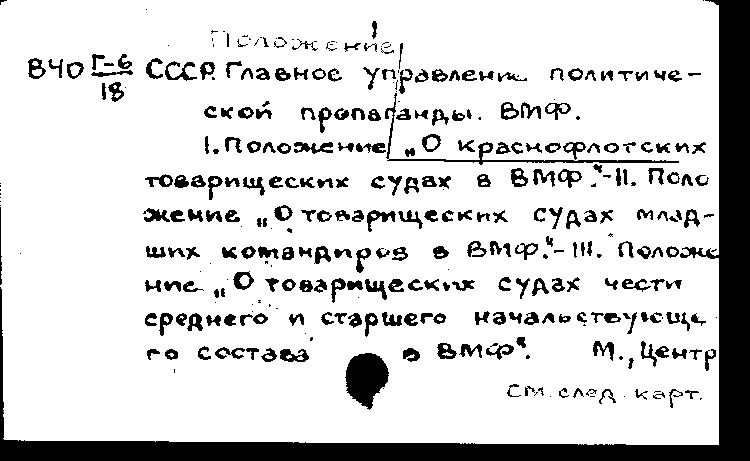 Положение
ВЧО Г-6/18 СССР. Главное управление политиче-
ской пропаганды. ВМФ.
I. Положение „О краснофлотских
товарищеских судах в ВМФ."-II. Поло
жение „О товарищеских судах млад-
ших командиров в ВМФ."-III. Положе
ние „О товарищеских судах чести
среднего и старшего начальствующе
го состава в ВМФ". М., Центр
См. след. карт.